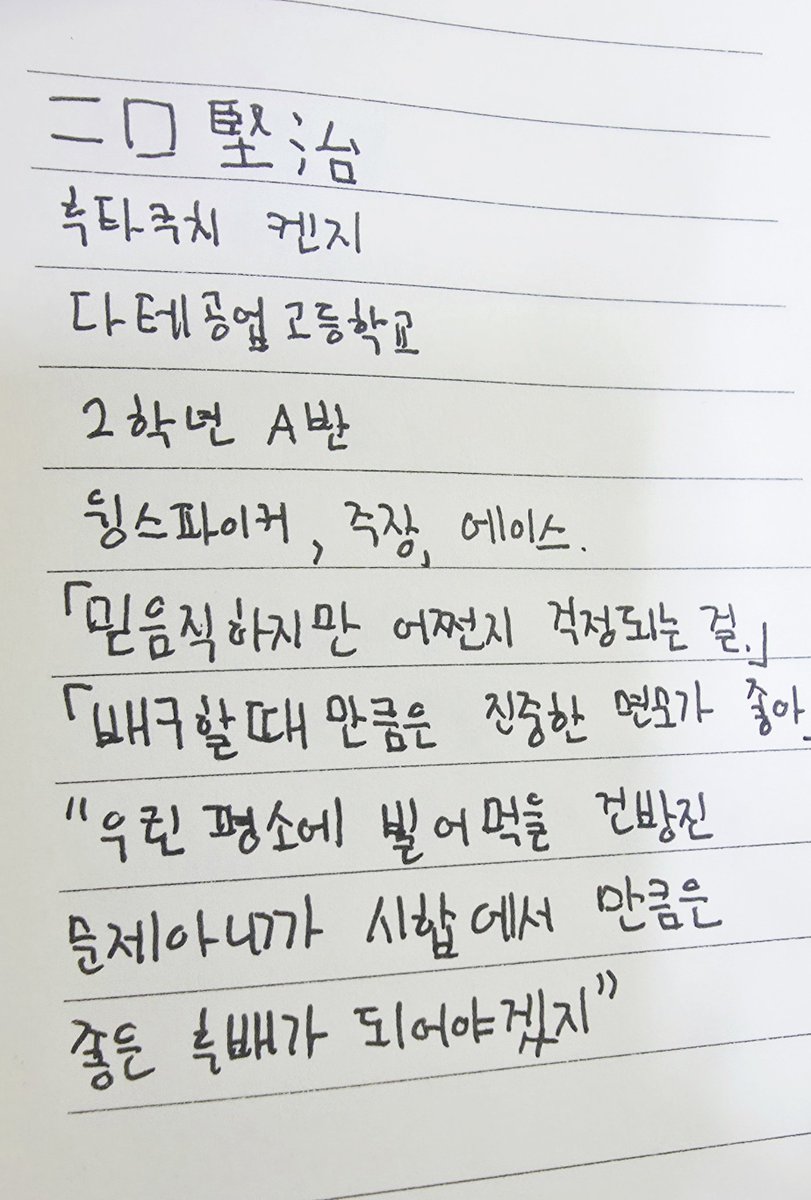 二口 堅治
후타쿠치 켄지
다테공업고등학교
2학년 A반
윙스파이커, 주장, 에이스.
「믿음직하지만 어쩐지 걱정되는 걸.」
「배구할때 만큼은 진중한 면모가 좋아.
"우린 평소에 빌어먹들 건방진
문제아니까 시합에서 만큼은
좋든 후배가 되어야겠지"